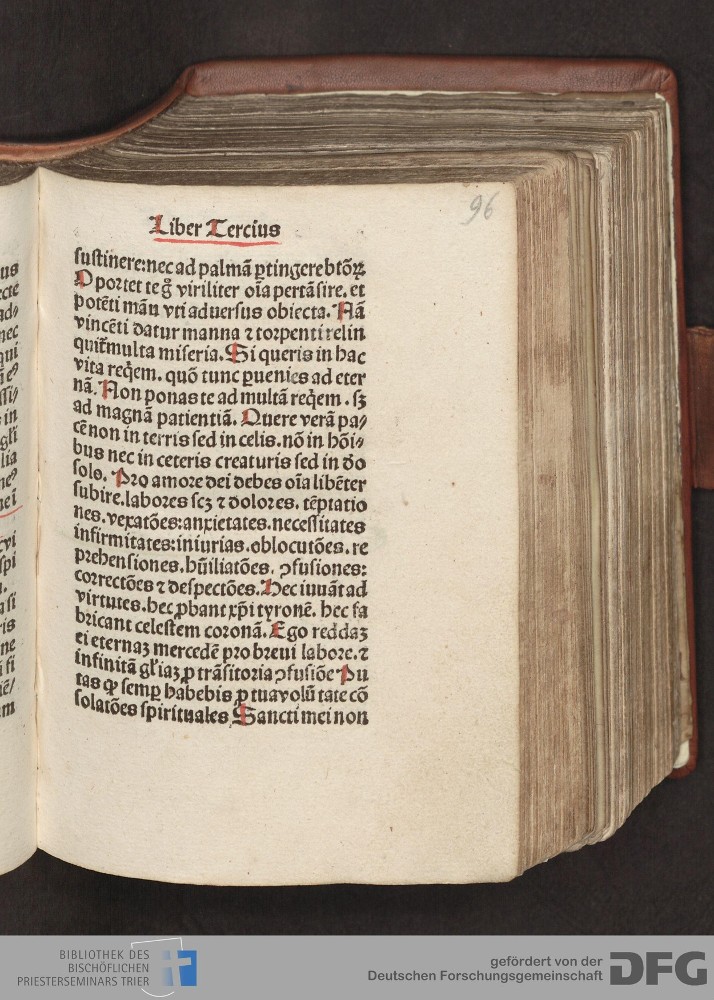 96
Liber Tercius
sustinere:nec ad palmā ꝑtingere btōꝝ
Oportet te gͦ viriliter oīa pertāsire. et
potēti manu vti aduersus obiecta. Nā
vincēti datur manna ⁊ torpenti relin
quit̄ multa miseria. Si queris in hac
vita reqͥem. quō tunc ꝑuenies ad eter
nā. Non ponas te ad multā reqͥem. sꝫ
ad magnā patientiā. Quere verā pa⸗
cē non in terris sed in celis. nō in hōi⸗
bus nec in ceteris creaturis sed in deo
solo. Pro amore dei debes oīa libēter
subire. labores scꝫ ⁊ dolores. tēptatio
nes. vexatōes: anxietates. necessitates
infirmitates: iniurias. oblocutōes. re
prehensiones. hūiliatōes. ꝯfusiones:
correctōes ⁊ despectōes. Hec iuuāt ad
virtutes. hec ꝓbant xp̄i tyronē. hec fa
bricant celestem coronā. Ego reddaꝫ
ei eternaꝫ mercedē pro breui labore. ⁊
infinitā gl'iaꝫ ꝓ trāsitoria ꝯfusiōe Pu
tas ꝙ semꝑ habebis ꝓ tua volūtate cō
solatōes spirituales Sancti mei non
us
ecte
ad⸗
nec
qui
in
lia
cvi
spi
a si
ris
ne
i si
m
BIBLIOTHEK DES
BISCHÖFLICHEN
PRIESTERSEMINARS TRIER
gefördert von der
Deutschen Forschungsgemeinschaft
DFG